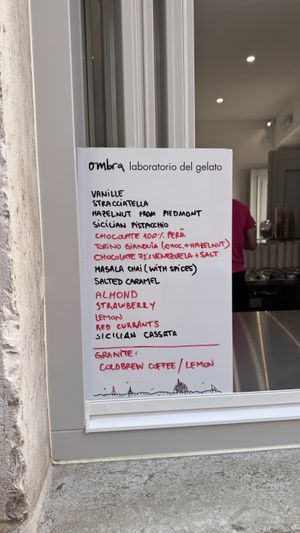 ombra laboratorio del gelato
VANILLE
STRACCIATELLA
HAZELNUT FROM PIEDMONT
SICILIAN PISTACCHIO
CHOCOLATE 100% PERÙ
TORINO GIANDUIA (CHOC.+HAZELNUT)
CHOCOLATE 72% VENEZUELA + SALT
MASALA CHAI (WITH SPICES)
SALTED CARAMEL
ALMOND
STRAWBERRY
LEMON
RED CURRANTS
SICILIAN CASSATA
GRANITE:
COLDBREW COFFEE / LEMON